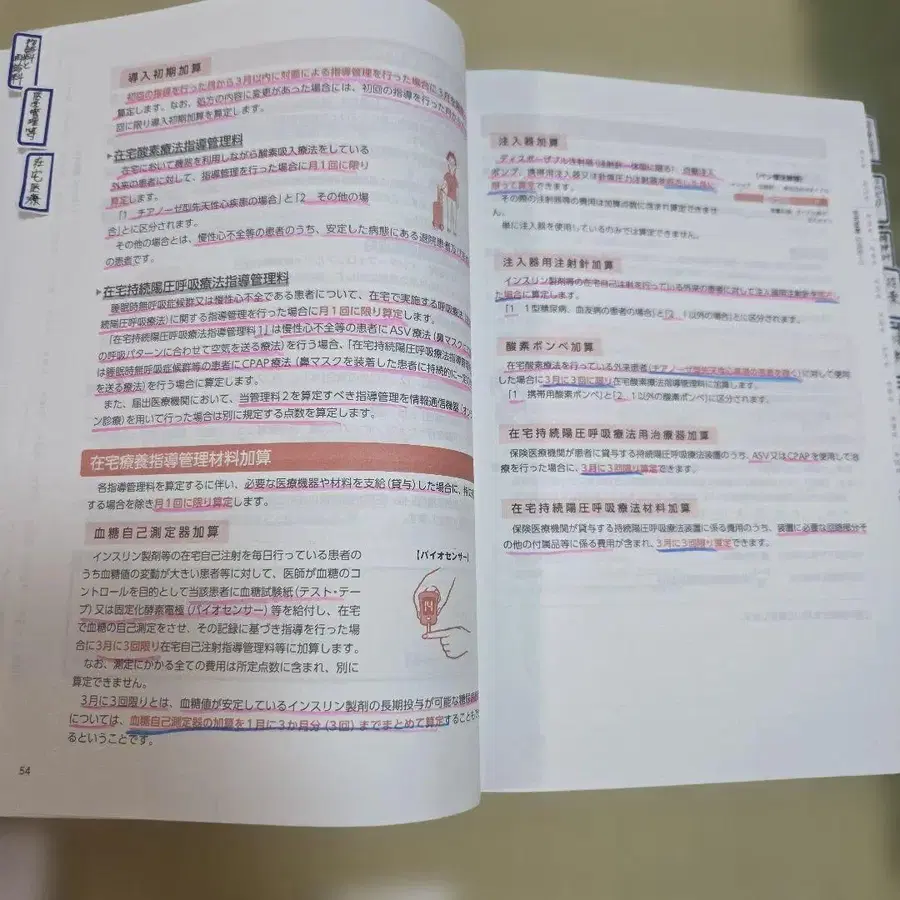 在宅医療
導入初期加算
初回の指導を行った月から3月以内に対面による指導管理を行った場合に3月を
算定します。なお、処方の内容に変更があった場合には、初回の指導を行った月から
回に限り導入初期加算を算定します。
▶在宅酸素療法指導管理料
在宅において機器を利用しながら酸素吸入療法をしている
外来の患者に対して、指導管理を行った場合に月1回に限り
算定します。
「1 チアノーゼ型先天性心疾患の場合」と「2 その他の場
合」とに区分されます。
その他の場合とは、慢性心不全等の患者のうち、安定した病態にある退院患者及び
の患者です。
▶在宅持続陽圧呼吸療法指導管理料
睡眠時無呼吸症候群又は慢性心不全である患者について、在宅で実施する呼吸療法
続陽圧呼吸療法)に関する指導管理を行った場合に月1回に限り算定します。
「在宅持続陽圧呼吸療法指導管理料1」は慢性心不全等の患者にASV療法(鼻マスク
の呼吸パターンに合わせて空気を送る療法)を行う場合、「在宅持続陽圧呼吸療法指導管理
は睡眠時無呼吸症候群等の患者にCPAP療法(鼻マスクを装着した患者に持続的に一定
を送る療法)を行う場合に算定します。
また、届出医療機関において、当管理料2を算定すべき指導管理を情報通信機器(オン
ン診療)を用いて行った場合は別に規定する点数を算定します。
在宅療養指導管理材料加算
各指導管理料を算定するに伴い、必要な医療機器や材料を支給(貸与)した場合に、
する場合を除き月1回に限り算定します。
血糖自己測定器加算
インスリン製剤等の在宅自己注射を毎日行っている患者の
うち血糖値の変動が大きい患者等に対して、医師が血糖のコ
ントロールを目的として当該患者に血糖試験紙(テスト・テー
プ)又は固定化酵素電極(バイオセンサー)等を給付し、在宅
で血糖の自己測定をさせ、その記録に基づき指導を行った場
合に3月に3回限り在宅自己注射指導管理料等に加算します。
なお、測定にかかる全ての費用は所定点数に含まれ、別に
算定できません。
【バイオセンサー】
3月に3回限りとは、血糖値が安定しているインスリン製剤の長期投与が可能な
については、血糖自己測定器の加算を1月に3か月分(3回)までまとめて算定することも
るということです。
54
注入器加算
ディスポーザブル注射器(注射針一体型に限る)、自動注入
ポンプ、携帯用注入器又は針無圧力注射器を処方した場合に
限って算定できます。
その際の注射器等の費用は加算点数に含まれ算定できませ
ん。
単に注入器を使用しているのみでは算定できません。
注入器用注射針加算
インスリン製剤等の在宅自己注射を行っている外来の患者に対して注入器用注射針を処方し
た場合に算定します。
「1 1型糖尿病、血友病の患者の場合」と「2 1以外の場合」とに区分されます。
酸素ボンベ加算
在宅酸素療法を行っている外来患者(チアノーゼ型先天性心疾患の患者を除く)に対して使用
した場合に3月に3回に限り在宅酸素療法指導管理料に加算します。
「1 携帯用酸素ボンベ」と「2 1以外の酸素ボンベ」に区分されます。
在宅持続陽圧呼吸療法用治療器加算
保険医療機関が患者に貸与する持続陽圧呼吸療法装置のうち、ASV又はCPAPを使用して治
療を行った場合に、3月に3回限り算定できます。
在宅持続陽圧呼吸療法材料加算
保険医療機関が貸与する持続陽圧呼吸療法装置に係る費用のうち、装置に必要な回路部分そ
の他の付属品等に係る費用が含まれ、3月に3回限り算定できます。